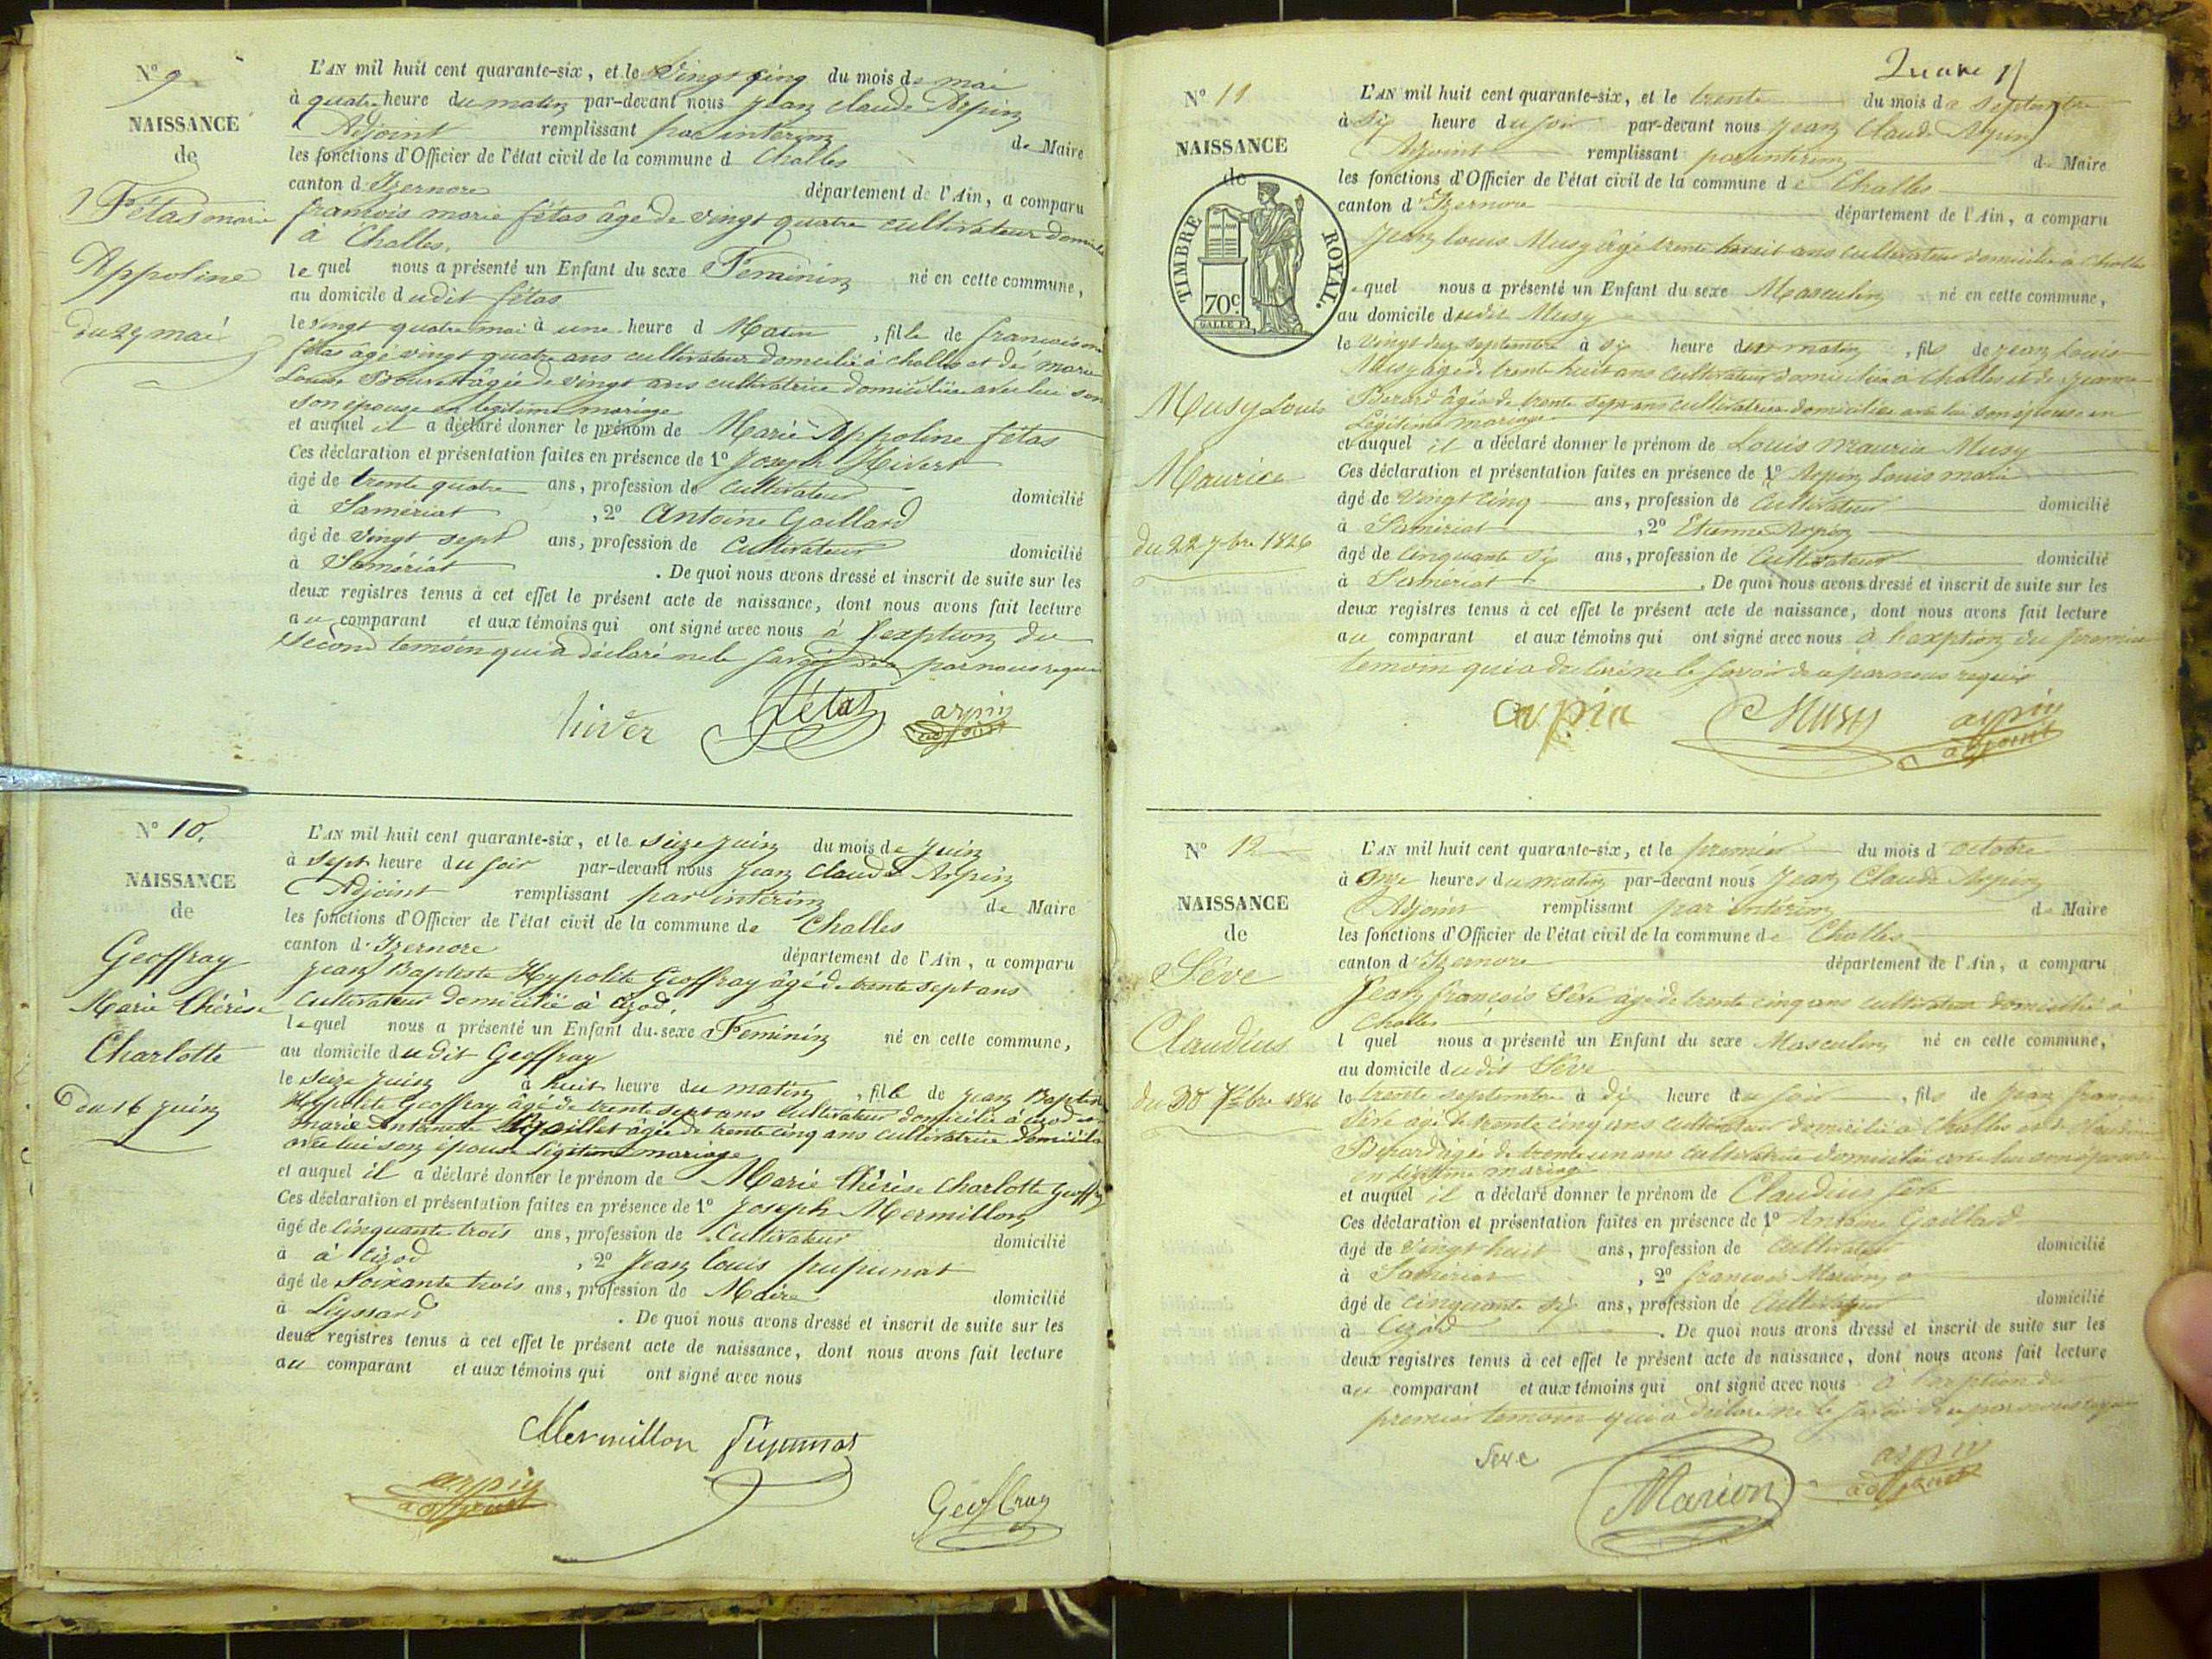 N° 9
NAISSANCE
de
Fétas marie
Appoline
du 24 mai
L'AN mil huit cent quarante-six, et le Vingt cinq du mois de mai
à quatre heure du matin par-devant nous Jean claude Arpin
Adjoint remplissant par interim de Maire
les fonctions d'Officier de l'état civil de la commune d Challes
canton d'Izernore département de l'Ain, a comparu
francois marie fétas âgé de vingt quatre cultivateur domicilié
à Challes.
lequel nous a présenté un Enfant du sexe Feminin né en cette commune,
au domicile dudit fétas
le vingt quatre mai à une heure d Matin, fille de francois m
fétas âgé vingt quatre ans cultivateur domicilié à challes et de marie
Louise Bouvet âgée de vingt ans cultivatrice domiciliée avec lui son
son épouse en legitime mariage
et auquel il a déclaré donner le prénom de Marie Appoline fétas
Ces déclaration et présentation faites en présence de 1° Joseph Hivert
âgé de trente quatre ans, profession de Cultivateur domicilié
à Samériat, 2° Antoine Gaillard
âgé de vingt sept ans, profession de Cultivateur domicilié
à Samériat. De quoi nous avons dressé et inscrit de suite sur les
deux registres tenus à cet effet le présent acte de naissance, dont nous avons fait lecture
au comparant et aux témoins qui ont signé avec nous à l'exption du
second temoin qui a déclaré ne le savoir de ce par nous requis
hiver fétas arpin
adjoint
N° 10.
NAISSANCE
de
Geoffray
Marie thérèse
Charlotte
du 16 juin
L'AN mil huit cent quarante-six, et le seize juin du mois de juin
à sept heure du soir par-devant nous Jean Claude Arpin
Adjoint remplissant par intérim de Maire
les fonctions d'Officier de l'état civil de la commune de Challes
canton d'Izernore département de l'Ain, a comparu
Jean Baptiste Hypolite Geoffray âgé de trente sept ans
Cultivateur domicilié à Cizod,
lequel nous a présenté un Enfant du sexe Feminin né en cette commune,
au domicile dudit Geoffray
le seize juin à huit heure du matin, fille de Jean Baptiste
Hypolite Geoffray âgé de trente sept ans Cultivateur domicilié à Cizod et
marie Antoinette âgée de trente cinq ans cultivatrice domicilié
avec lui son épouse légitime mariage
et auquel il a déclaré donner le prénom de Marie thérèse Charlotte Geoffray
Ces déclaration et présentation faites en présence de 1° Joseph Mermillon
âgé de cinquante trois ans, profession de Cultivateur domicilié
à à Cizod, 2° Jean louis pupunat
âgé de Soixante trois ans, profession de Maire domicilié
à Leyssard. De quoi nous avons dressé et inscrit de suite sur les
deux registres tenus à cet effet le présent acte de naissance, dont nous avons fait lecture
au comparant et aux témoins qui ont signé avec nous
Mermillon Pupunat
arpin
adjoint
Geoffray
N° 11
NAISSANCE
de
TIMBRE ROYAL.
70c
Musy Louis
Maurice
du 22 7bre 1826
L'AN mil huit cent quarante-six, et le trente du mois de septembre
à six heure du soir par-devant nous Jean Claude Arpin
Adjoint remplissant par interim de Maire
les fonctions d'Officier de l'état civil de la commune de Challes
canton d'Izernore département de l'Ain, a comparu
Jean louis Musy âgé trente huit ans cultivateur domicilié à Challes
lequel nous a présenté un Enfant du sexe Masculin né en cette commune,
au domicile dudit Musy
le Vingt deux septembre à six heure du matin, fils de Jean Louis
Musy âgé de trente huit ans cultivateur domicilié à Challes et de Jeanne
Berard âgée de trente sept ans cultivatrice domiciliée avec lui son épouse en
Légitime mariage
et auquel il a déclaré donner le prénom de Louis Maurice Musy
Ces déclaration et présentation faites en présence de 1° Arpin Louis marie
âgé de Vingt cinq ans, profession de Cultivateur domicilié
à Samériat, 2° Etienne Arpin
âgé de cinquante six ans, profession de Cultivateur domicilié
à Samériat. De quoi nous avons dressé et inscrit de suite sur les
deux registres tenus à cet effet le présent acte de naissance, dont nous avons fait lecture
au comparant et aux témoins qui ont signé avec nous à l'exption du premier
temoin qui a declaré ne le savoir de ce par nous requis
arpin Musy arpin
adjoint
N° 12
NAISSANCE
de
Sève
Claudius
du 30 7bre 1846
L'AN mil huit cent quarante-six, et le premier du mois d'octobre
à onze heures du matin par-devant nous Jean Claude Arpin
Adjoint remplissant par intérim de Maire
les fonctions d'Officier de l'état civil de la commune de Challes
canton d'Izernore département de l'Ain, a comparu
Jean francois Sève âgé de trente cinq ans cultivateur domicilié à
Challes
l quel nous a présenté un Enfant du sexe Masculin né en cette commune,
au domicile dudit Sève
le trente septembre à dix heure du soir, fils de Jean francois
Sève âgé de trente cinq ans cultivateur domicilié à Challes et de Claudine
Berard âgée de trente un ans cultivatrice domiciliée avec lui son épouse
en légitime mariage
et auquel il a déclaré donner le prénom de Claudius
Ces déclaration et présentation faites en présence de 1° Antoine Gaillard
âgé de vingt huit ans, profession de cultivateur domicilié
à Samériat, 2° francois Marion
âgé de cinquante six ans, profession de Cultivateur domicilié
à Cizod. De quoi nous avons dressé et inscrit de suite sur les
deux registres tenus à cet effet le présent acte de naissance, dont nous avons fait lecture
au comparant et aux témoins qui ont signé avec nous à l'exption du
premier temoin qui a déclaré ne le savoir de ce par nous requis
Seve Marion arpin
adjoint